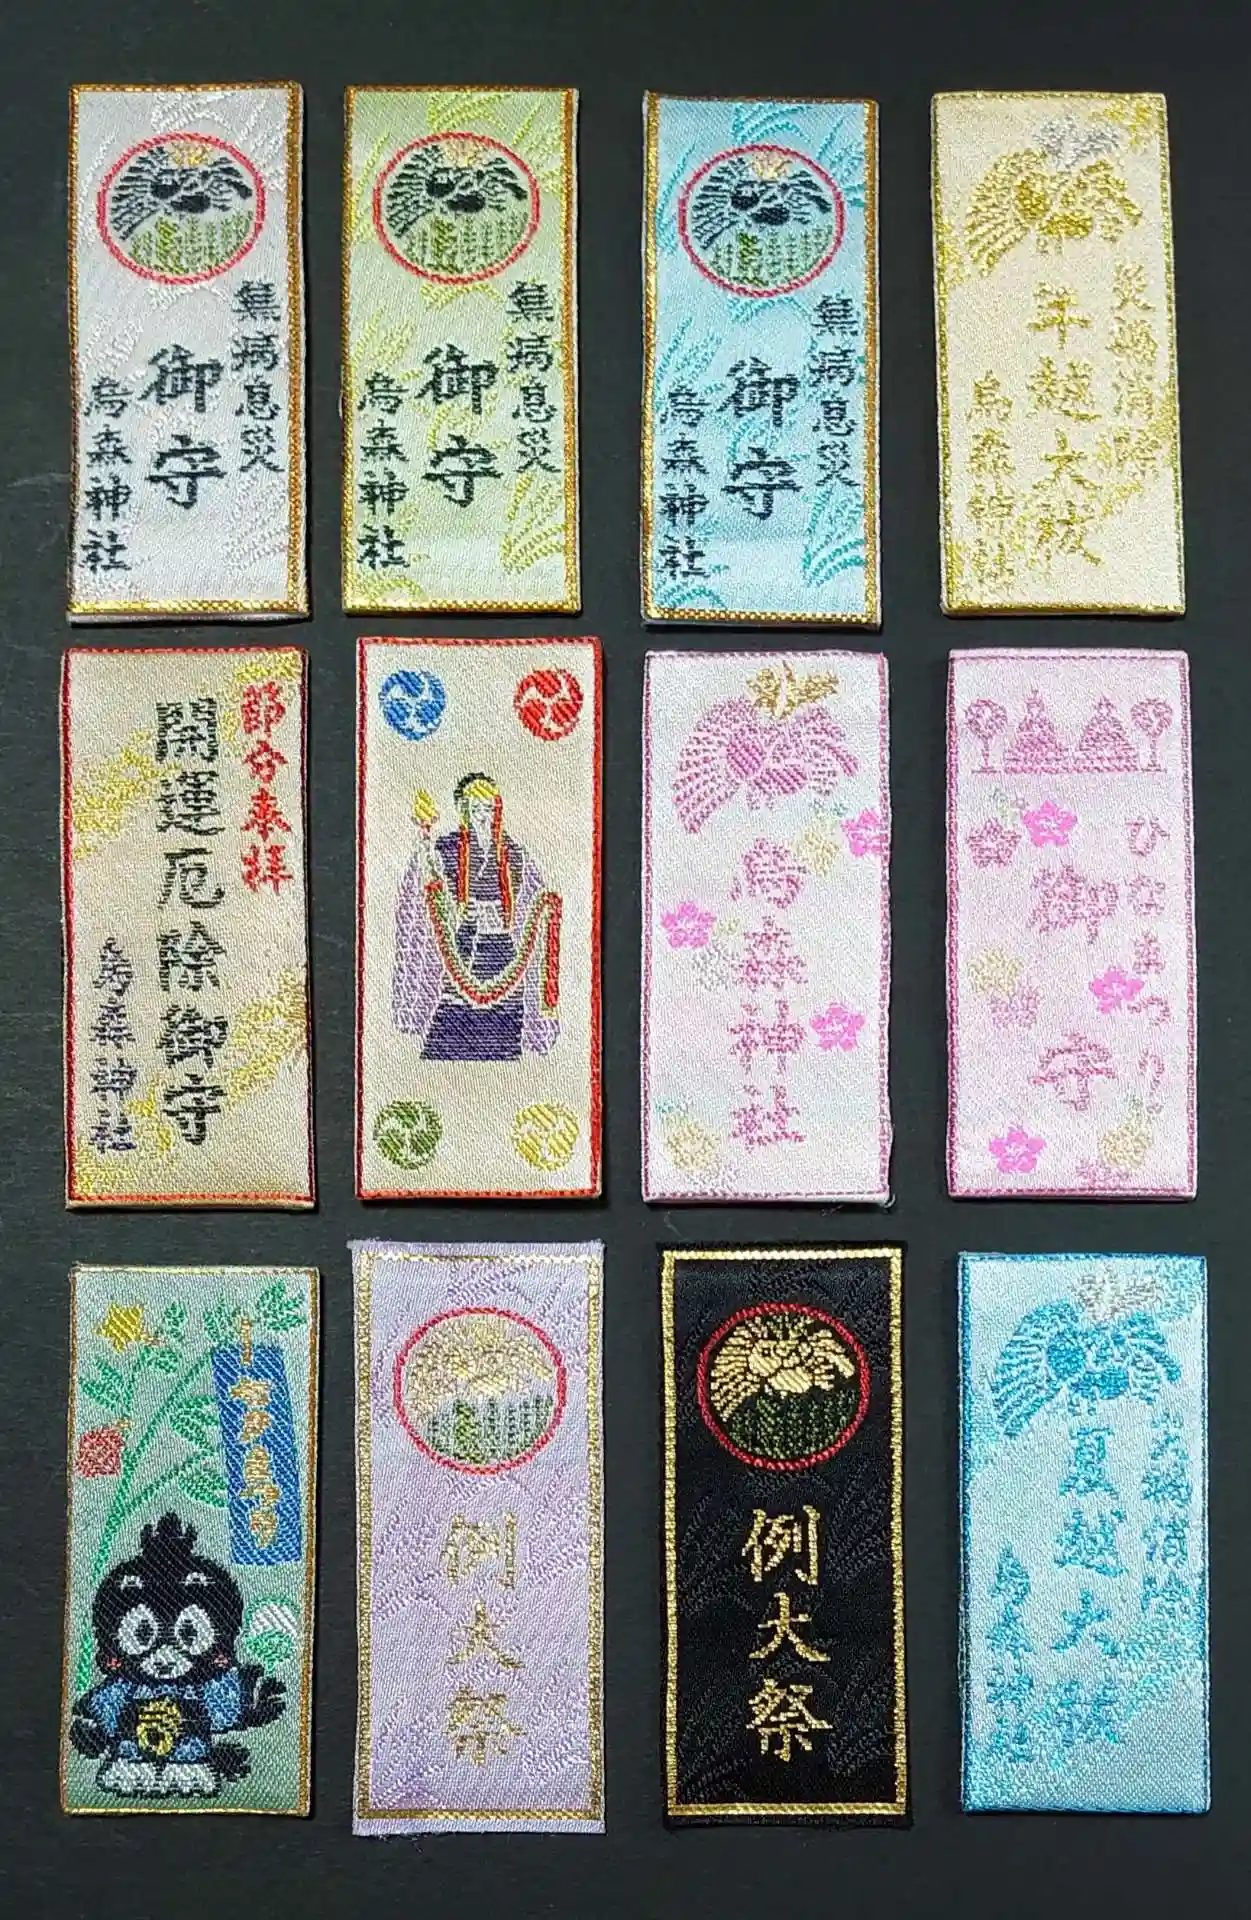 無病息災
御守
烏森神社
無病息災
御守
烏森神社
無病息災
御守
烏森神社
災禍消除
年越大祓
烏森神社
節分参拝
開運厄除御守
烏森神社
烏森神社
ひなまつり
御守
例大祭
例大祭
災禍消除
夏越大祓
烏森神社